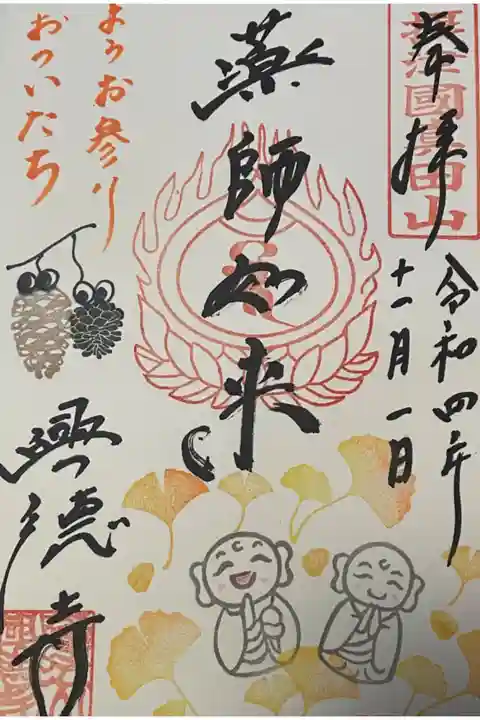 奉拝
摂津國真田山
令和四年
十一月一日
薬師如来
ようお参り
おついたち
興徳寺